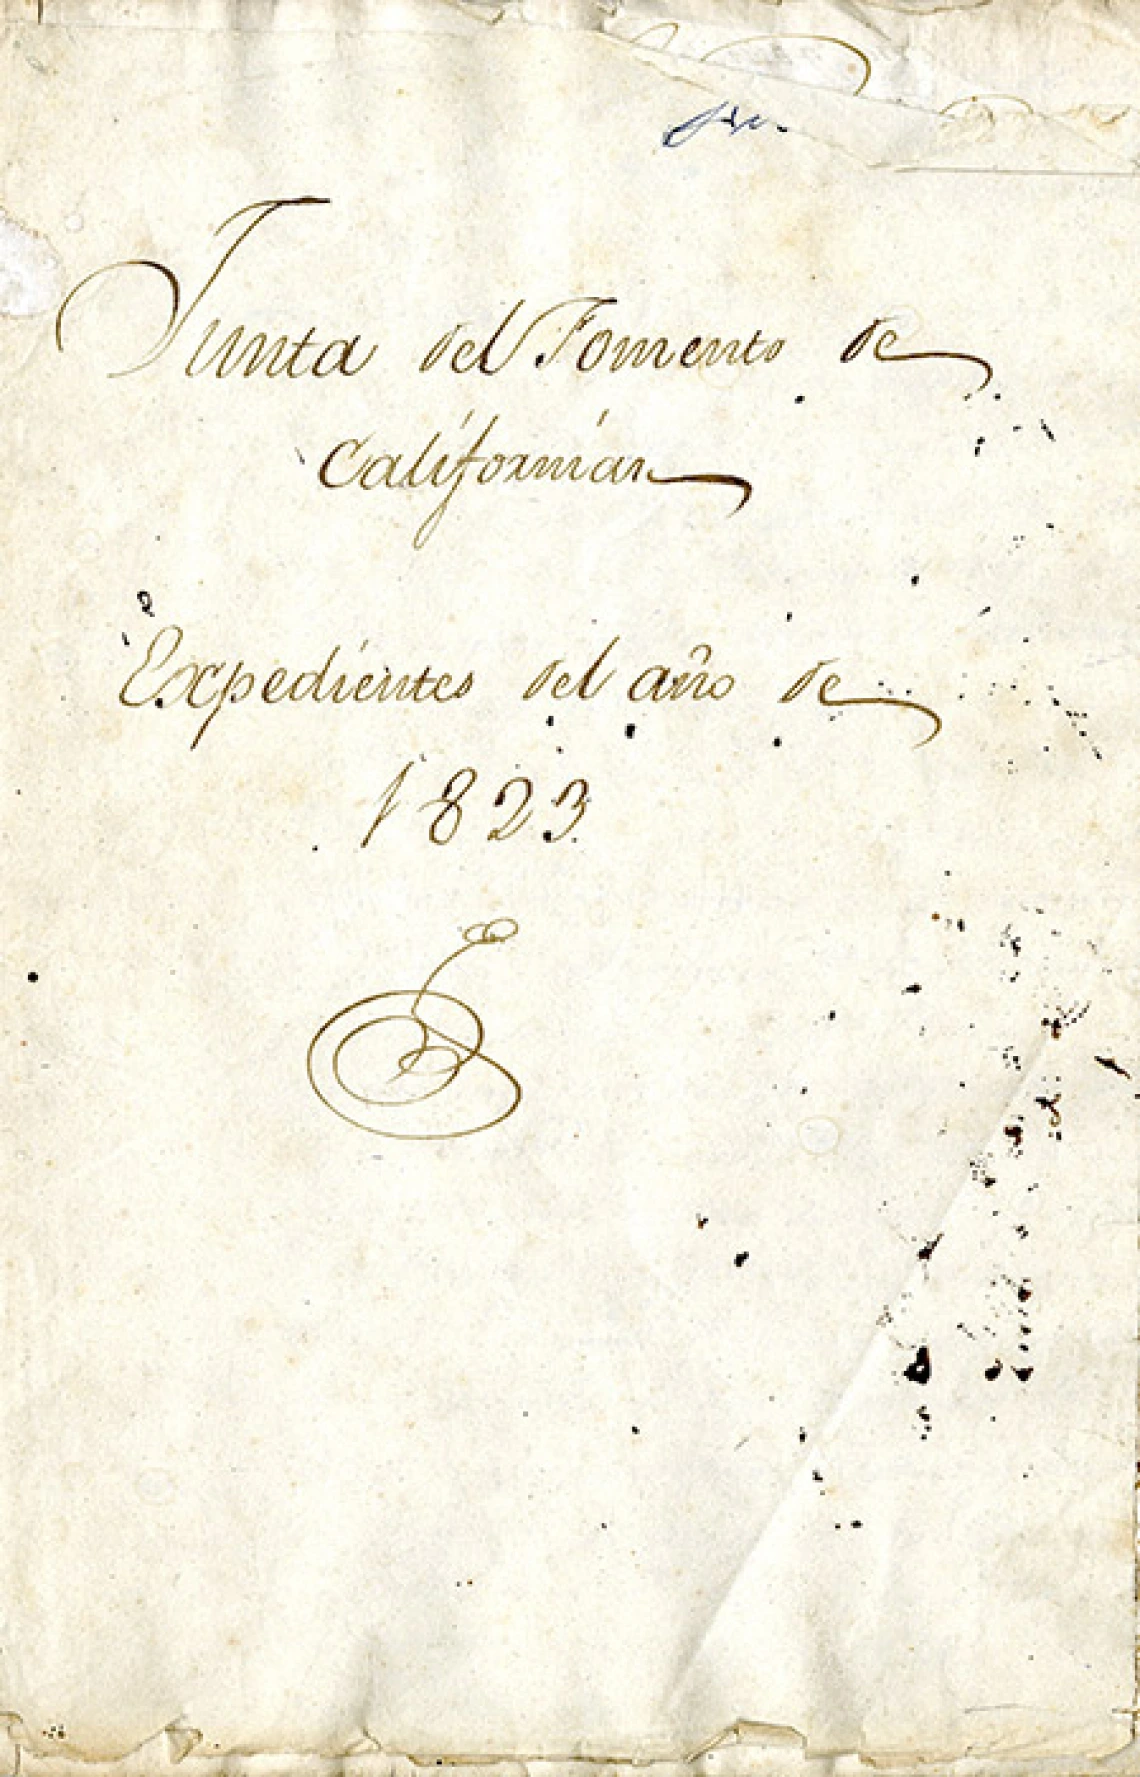 Junta del Fomento de
Californias
Expedientes del año de
1823